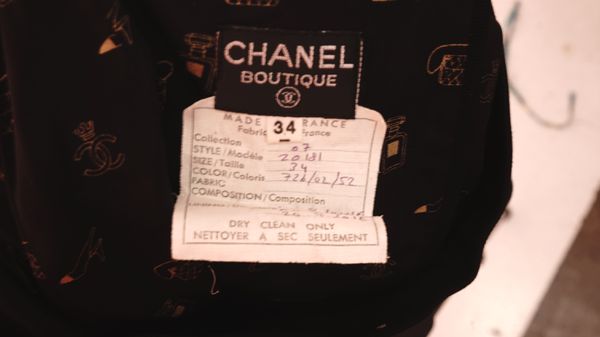 CHANEL
BOUTIQUE
MADE
34
RANCE
Fabri
France
Collection 07
STYLE/Modèle 20181
SIZE/Taille 34
COLOR/Coloris 726/02/52
FABRIC
COMPOSITION/Composition
DRY CLEAN ONLY
NETTOYER A SEC SEULEMENT